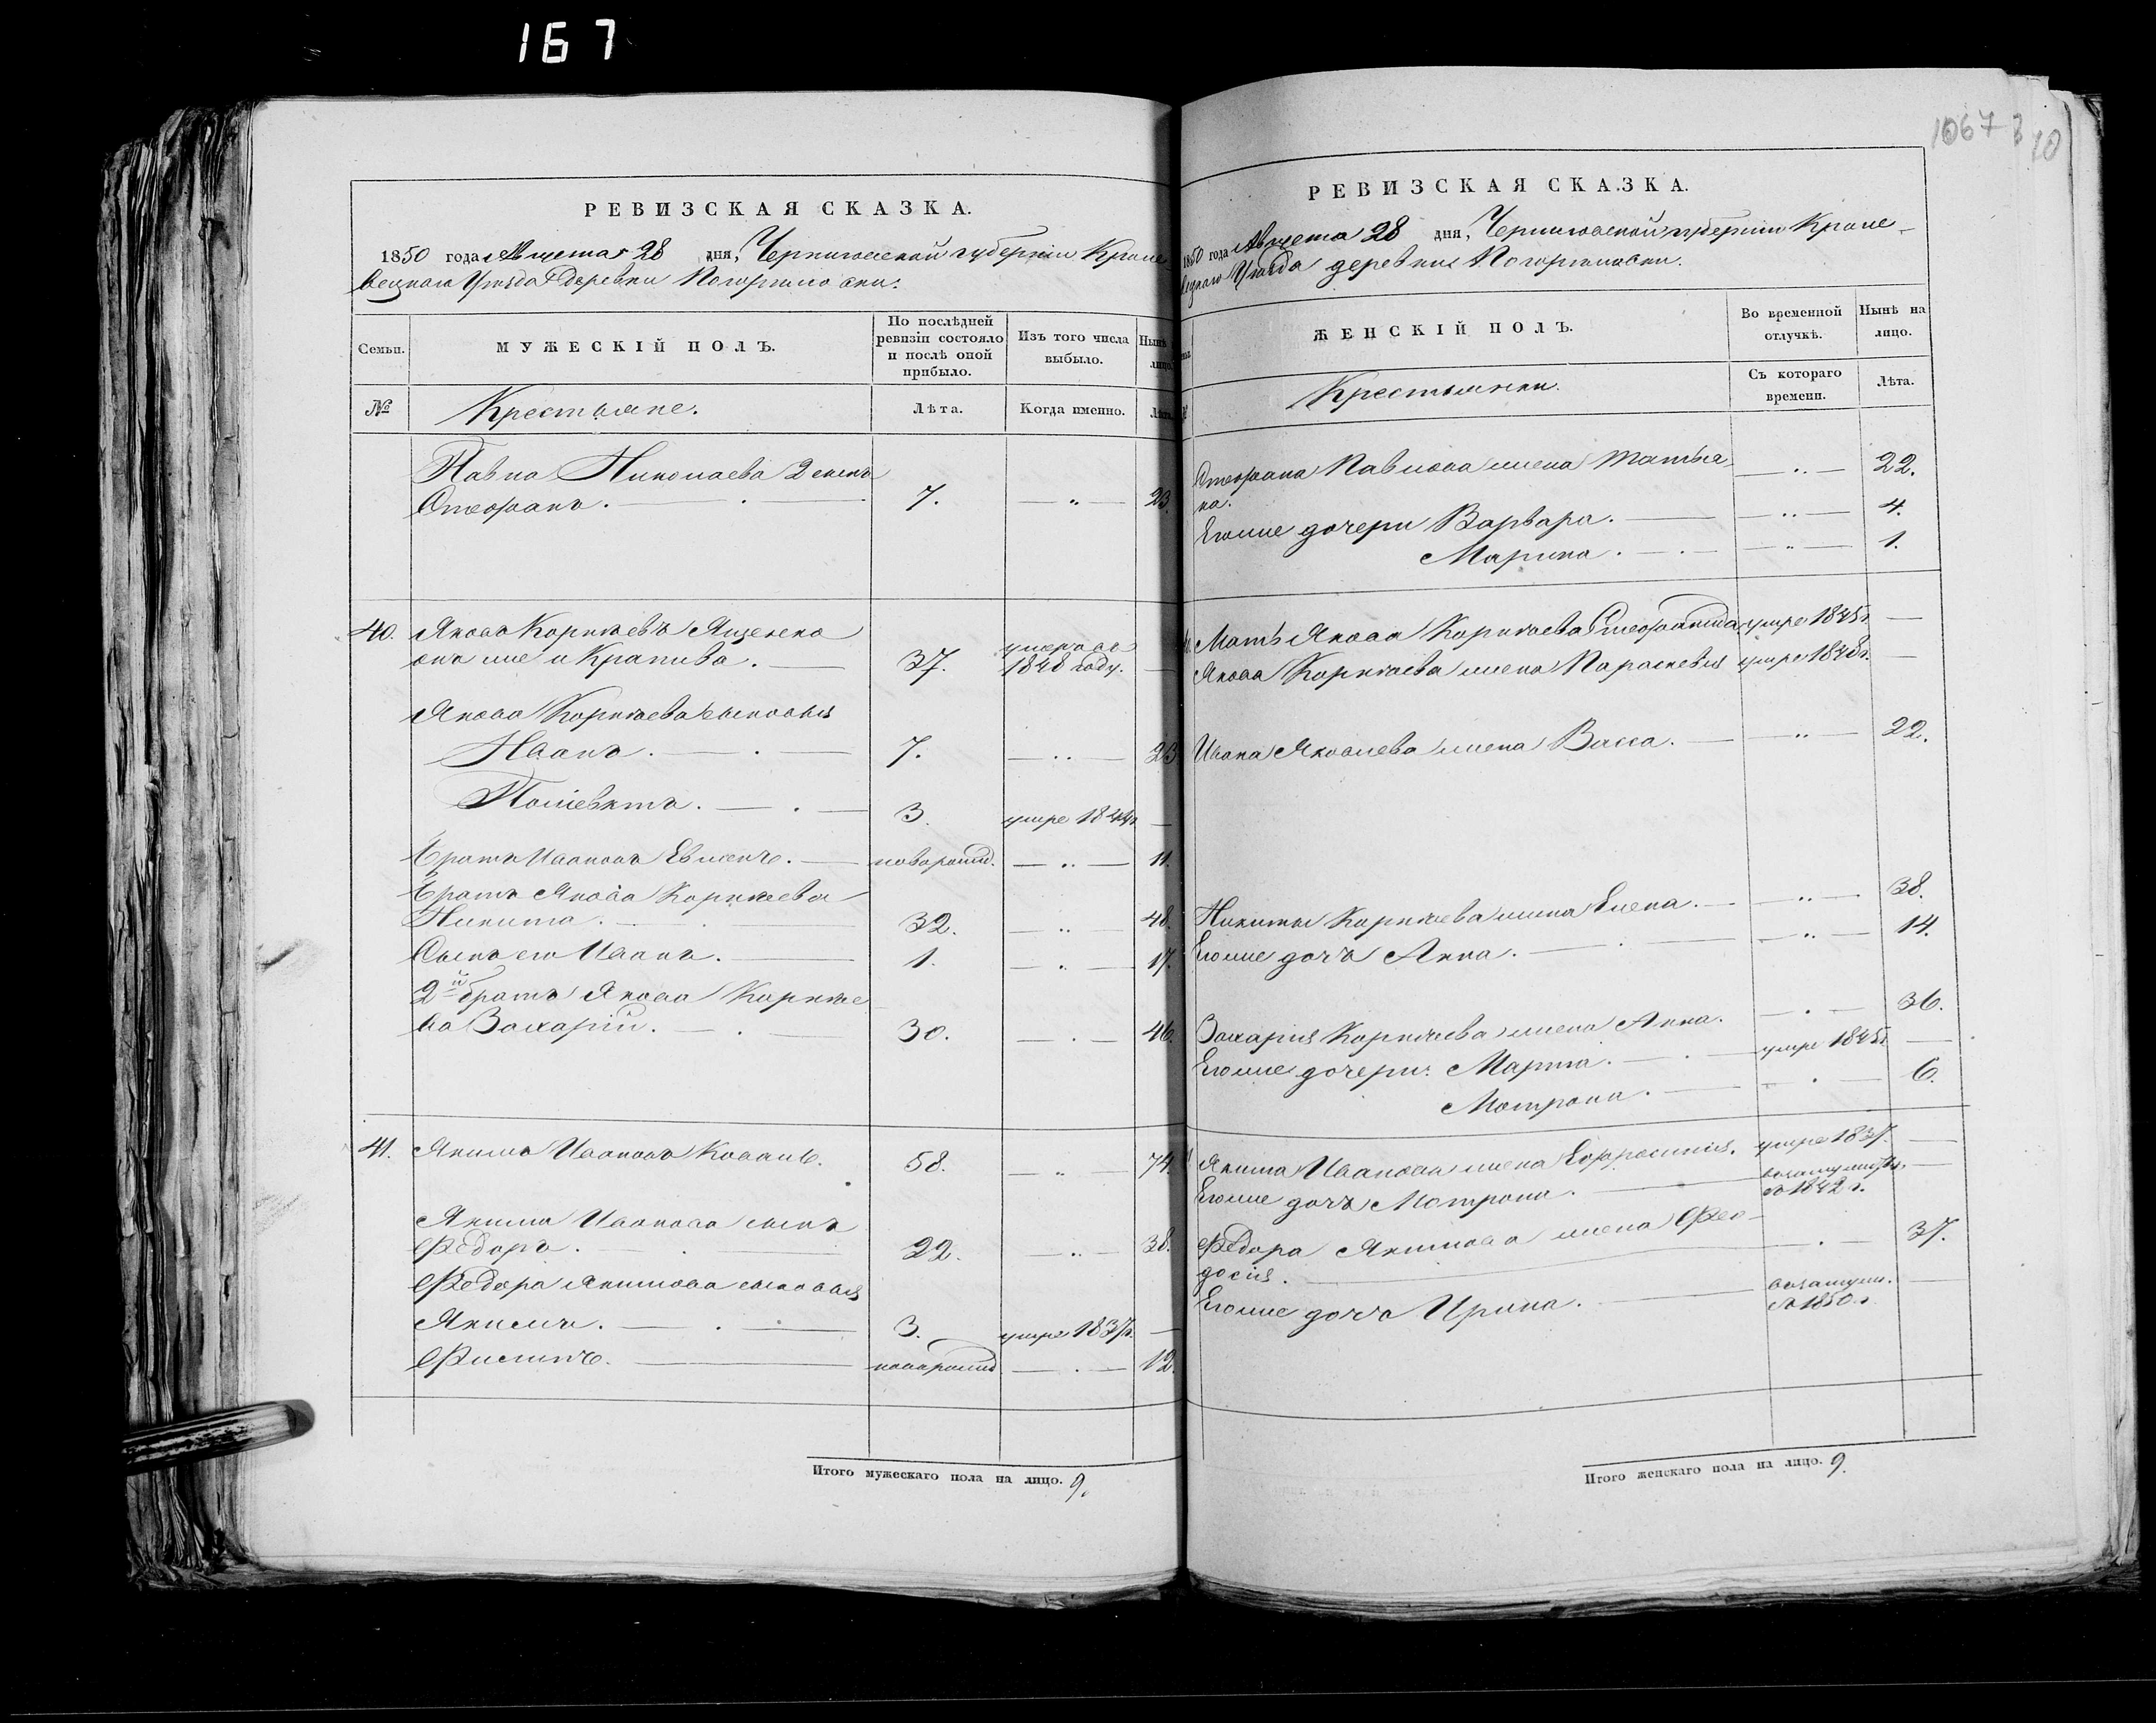 167
1067
10
РЕВИЗСКАЯ СКАЗКА.
1850 года Августа 28 дня, Черниговской губернии Кроле
вецкаго Уѣзда деревни Погориловки.
Семьи.
МУЖЕСКІЙ ПОЛЪ.
По послѣдней ревизіи состояло и послѣ оной прибыло.
Изъ того числа выбыло.
Нынѣ
лицо.
№
Крестьяне.
Лѣта.
Когда именно.
Лѣта.
Павла Николаева 2 сынъ
Стефанъ. 7. 23.
40. Яковъ Корнѣевъ
онъ же и Крапива. 37. умеръ въ 1848 году.
Якова Корнѣева сыновья
Иванъ. 7. 23
3. умре 1844г.
Братъ Ивановъ новорожд. 11.
Братъ Якова Корнѣева
Никита. 32. 48.
Сынъ его Иванъ. 1. 17.
2й братъ Якова Корнѣе
ва Захарій. 30. 46.
41. Якимъ Ивановъ Коваль. 58. 74.
Якима Иванова сынъ
Федоръ. 22. 38.
Федора Якимова сыновья
Якимъ. 3. умре 1837г.
Филипъ. новорожд 12.
Итого мужескаго пола на лицо. 9.
РЕВИЗСКАЯ СКАЗКА.
1850 года Августа 28 дня, Черниговской губерніи Кроле-
вецкаго Уѣзда деревни Погориловки.
ЖЕНСКІЙ ПОЛЪ.
Во временной отлучкѣ.
Нынѣ на лицо.
Крестьянки.
Съ котораго времени.
Лѣта.
Стефана Павлова жена Татья- 22.
на.
Егоже дочери Варвара. 4.
Марина. 1.
Мать Якова Корнѣева умре 1845г.
Якова Корнѣева жена Параскевія умре 1848г.
Ивана Яковлева жена Васса. 22.
Никиты Корнѣева жена Елена. 38.
Егоже дочь Анна. 14.
Захарія Корнѣева жена Анна. 36.
Егоже дочери: Марфа. умре 1845г.
Мотрона. 6.
Якима Иванова жена Ефросинія. умре 1837.
Егоже дочь Мотрона. взамужест. въ 1842 г.
Федора Якимова жена Фео- 37.
досія.
Егоже дочь Ирина. взамуж. въ 1850 г.
Итого женскаго пола на лицо. 9.